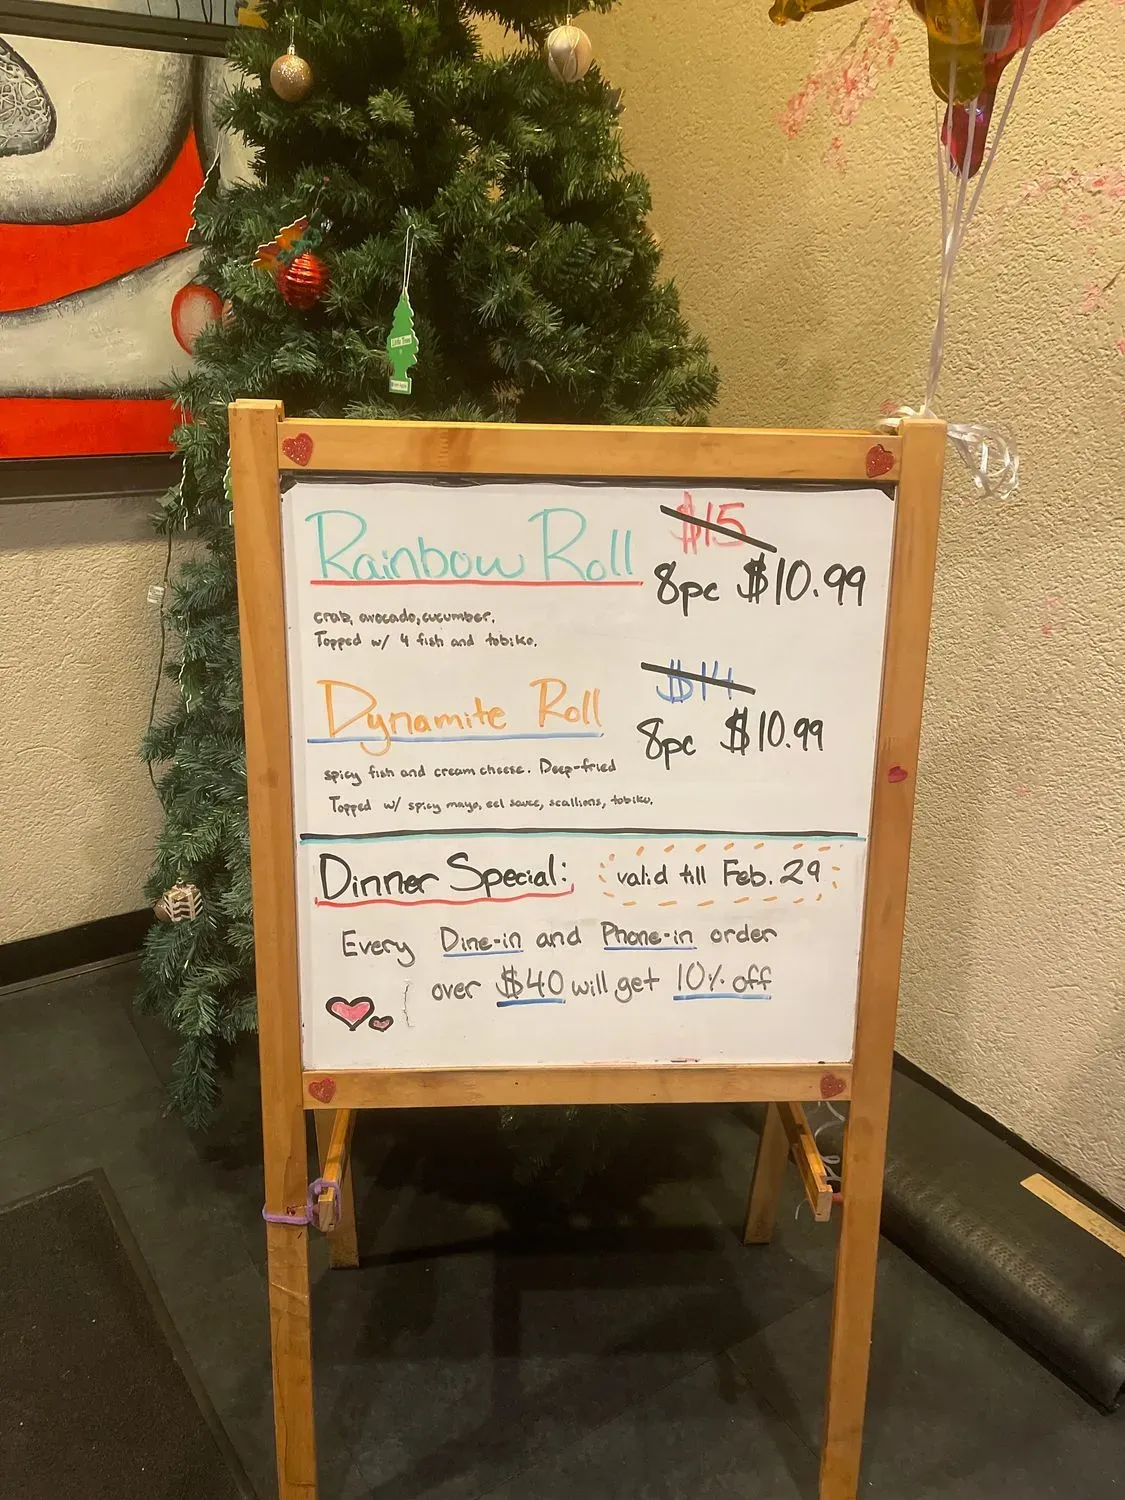 Rainbow Roll
$15
8pc $10.99
crab, avocado, cucumber.
Topped w/ 4 fish and tobiko.
Dynamite Roll
$14
8pc $10.99
spicy fish and cream cheese. Deep-fried
Topped w/ spicy mayo, eel sauce, scallions, tobiko.
Dinner Special:
valid till Feb. 29
Every Dine-in and Phone-in order
over $40 will get 10% off